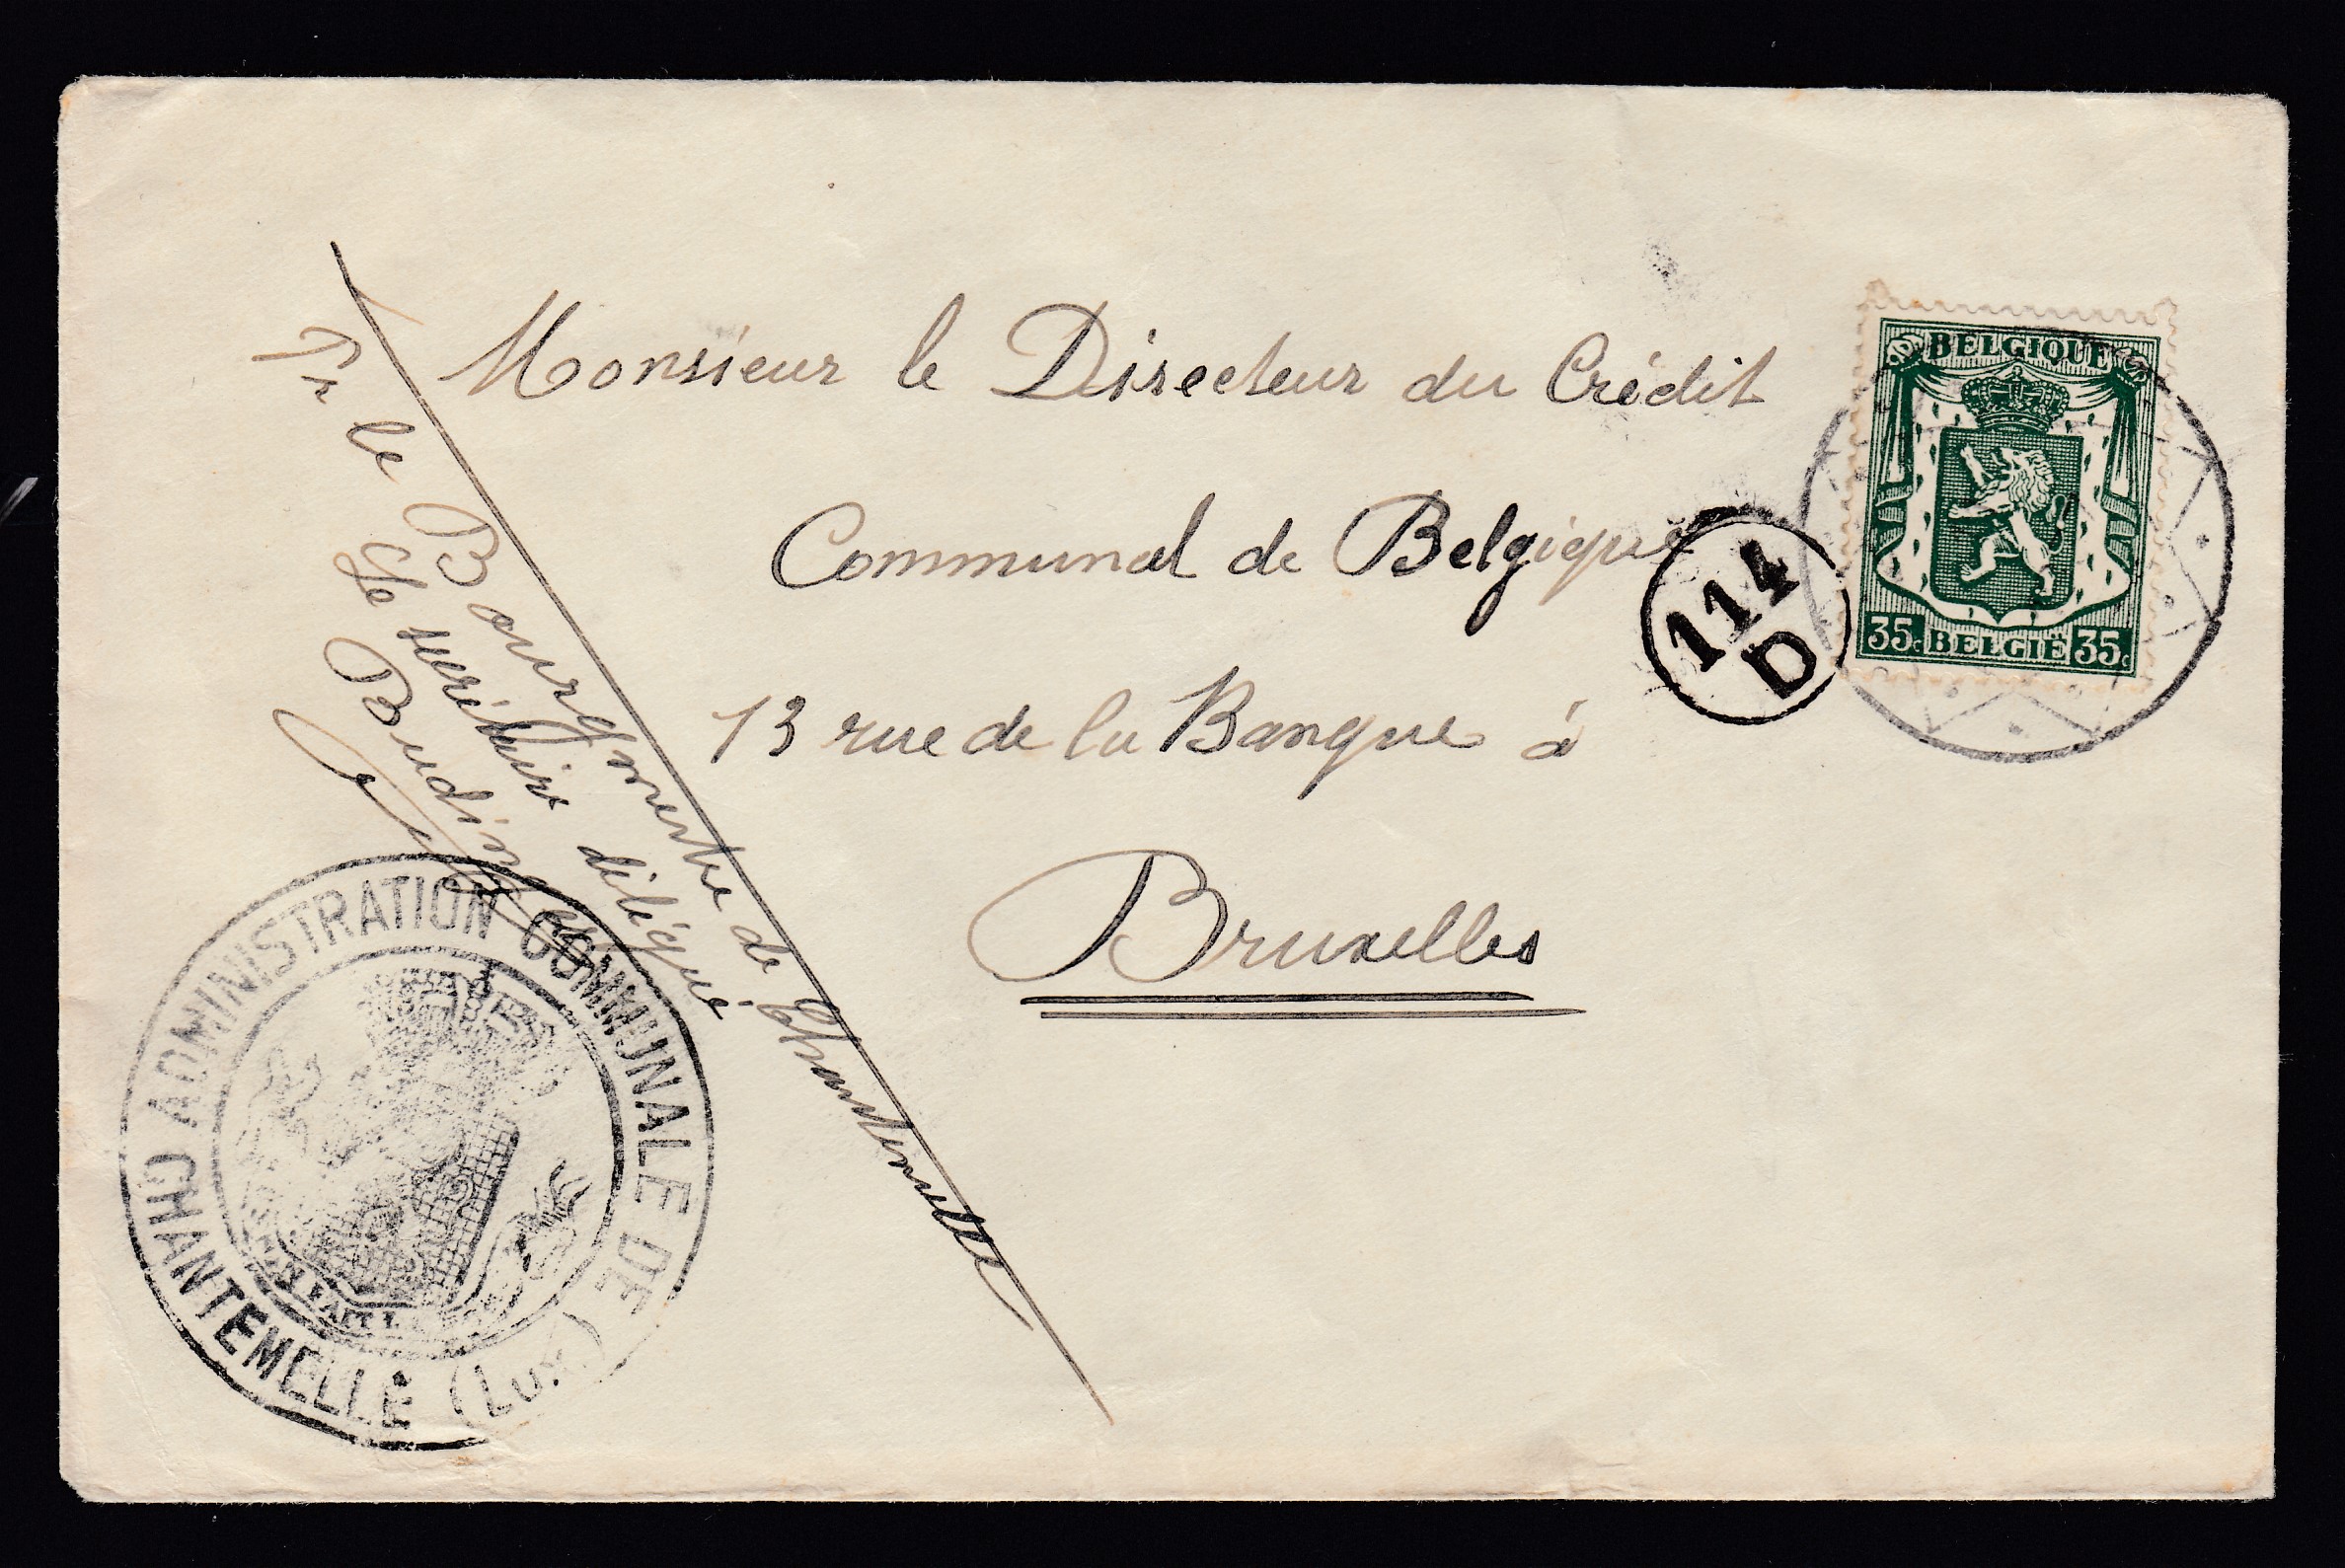 Monsieur le Directeur du Crédit
Communal de Belgique
13 rue de la Banque à
Bruxelles
Pr le Bourgmestre de Chantemelle
Le secrétaire délégué
ADMINISTRATION COMMUNALE DE
CHANTEMELLE (LUX.)
BELGIQUE
35c BELGIË 35c
114
D